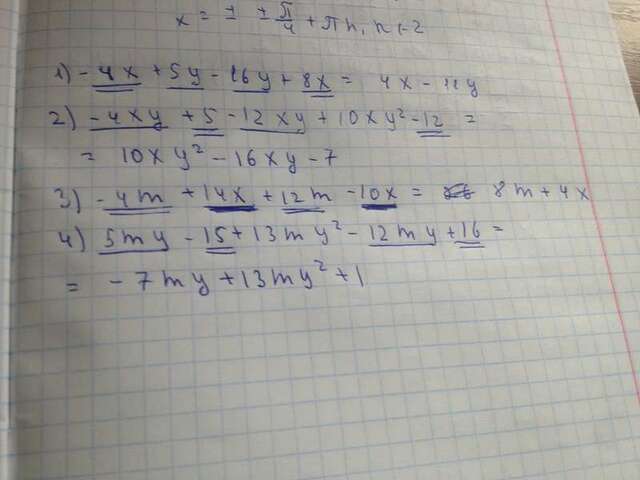 x = ± π/4 + πn, n ∈ Z
1) -4x + 5y - 16y + 8x = 4x - 11y
2) -4xy + 5 - 12xy + 10xy² - 12 =
= 10xy² - 16xy - 7
3) -4m + 14x + 12m - 10x = 8m + 4x
4) 5my - 15 + 13my² - 12my + 16 =
= -7my + 13my² + 1